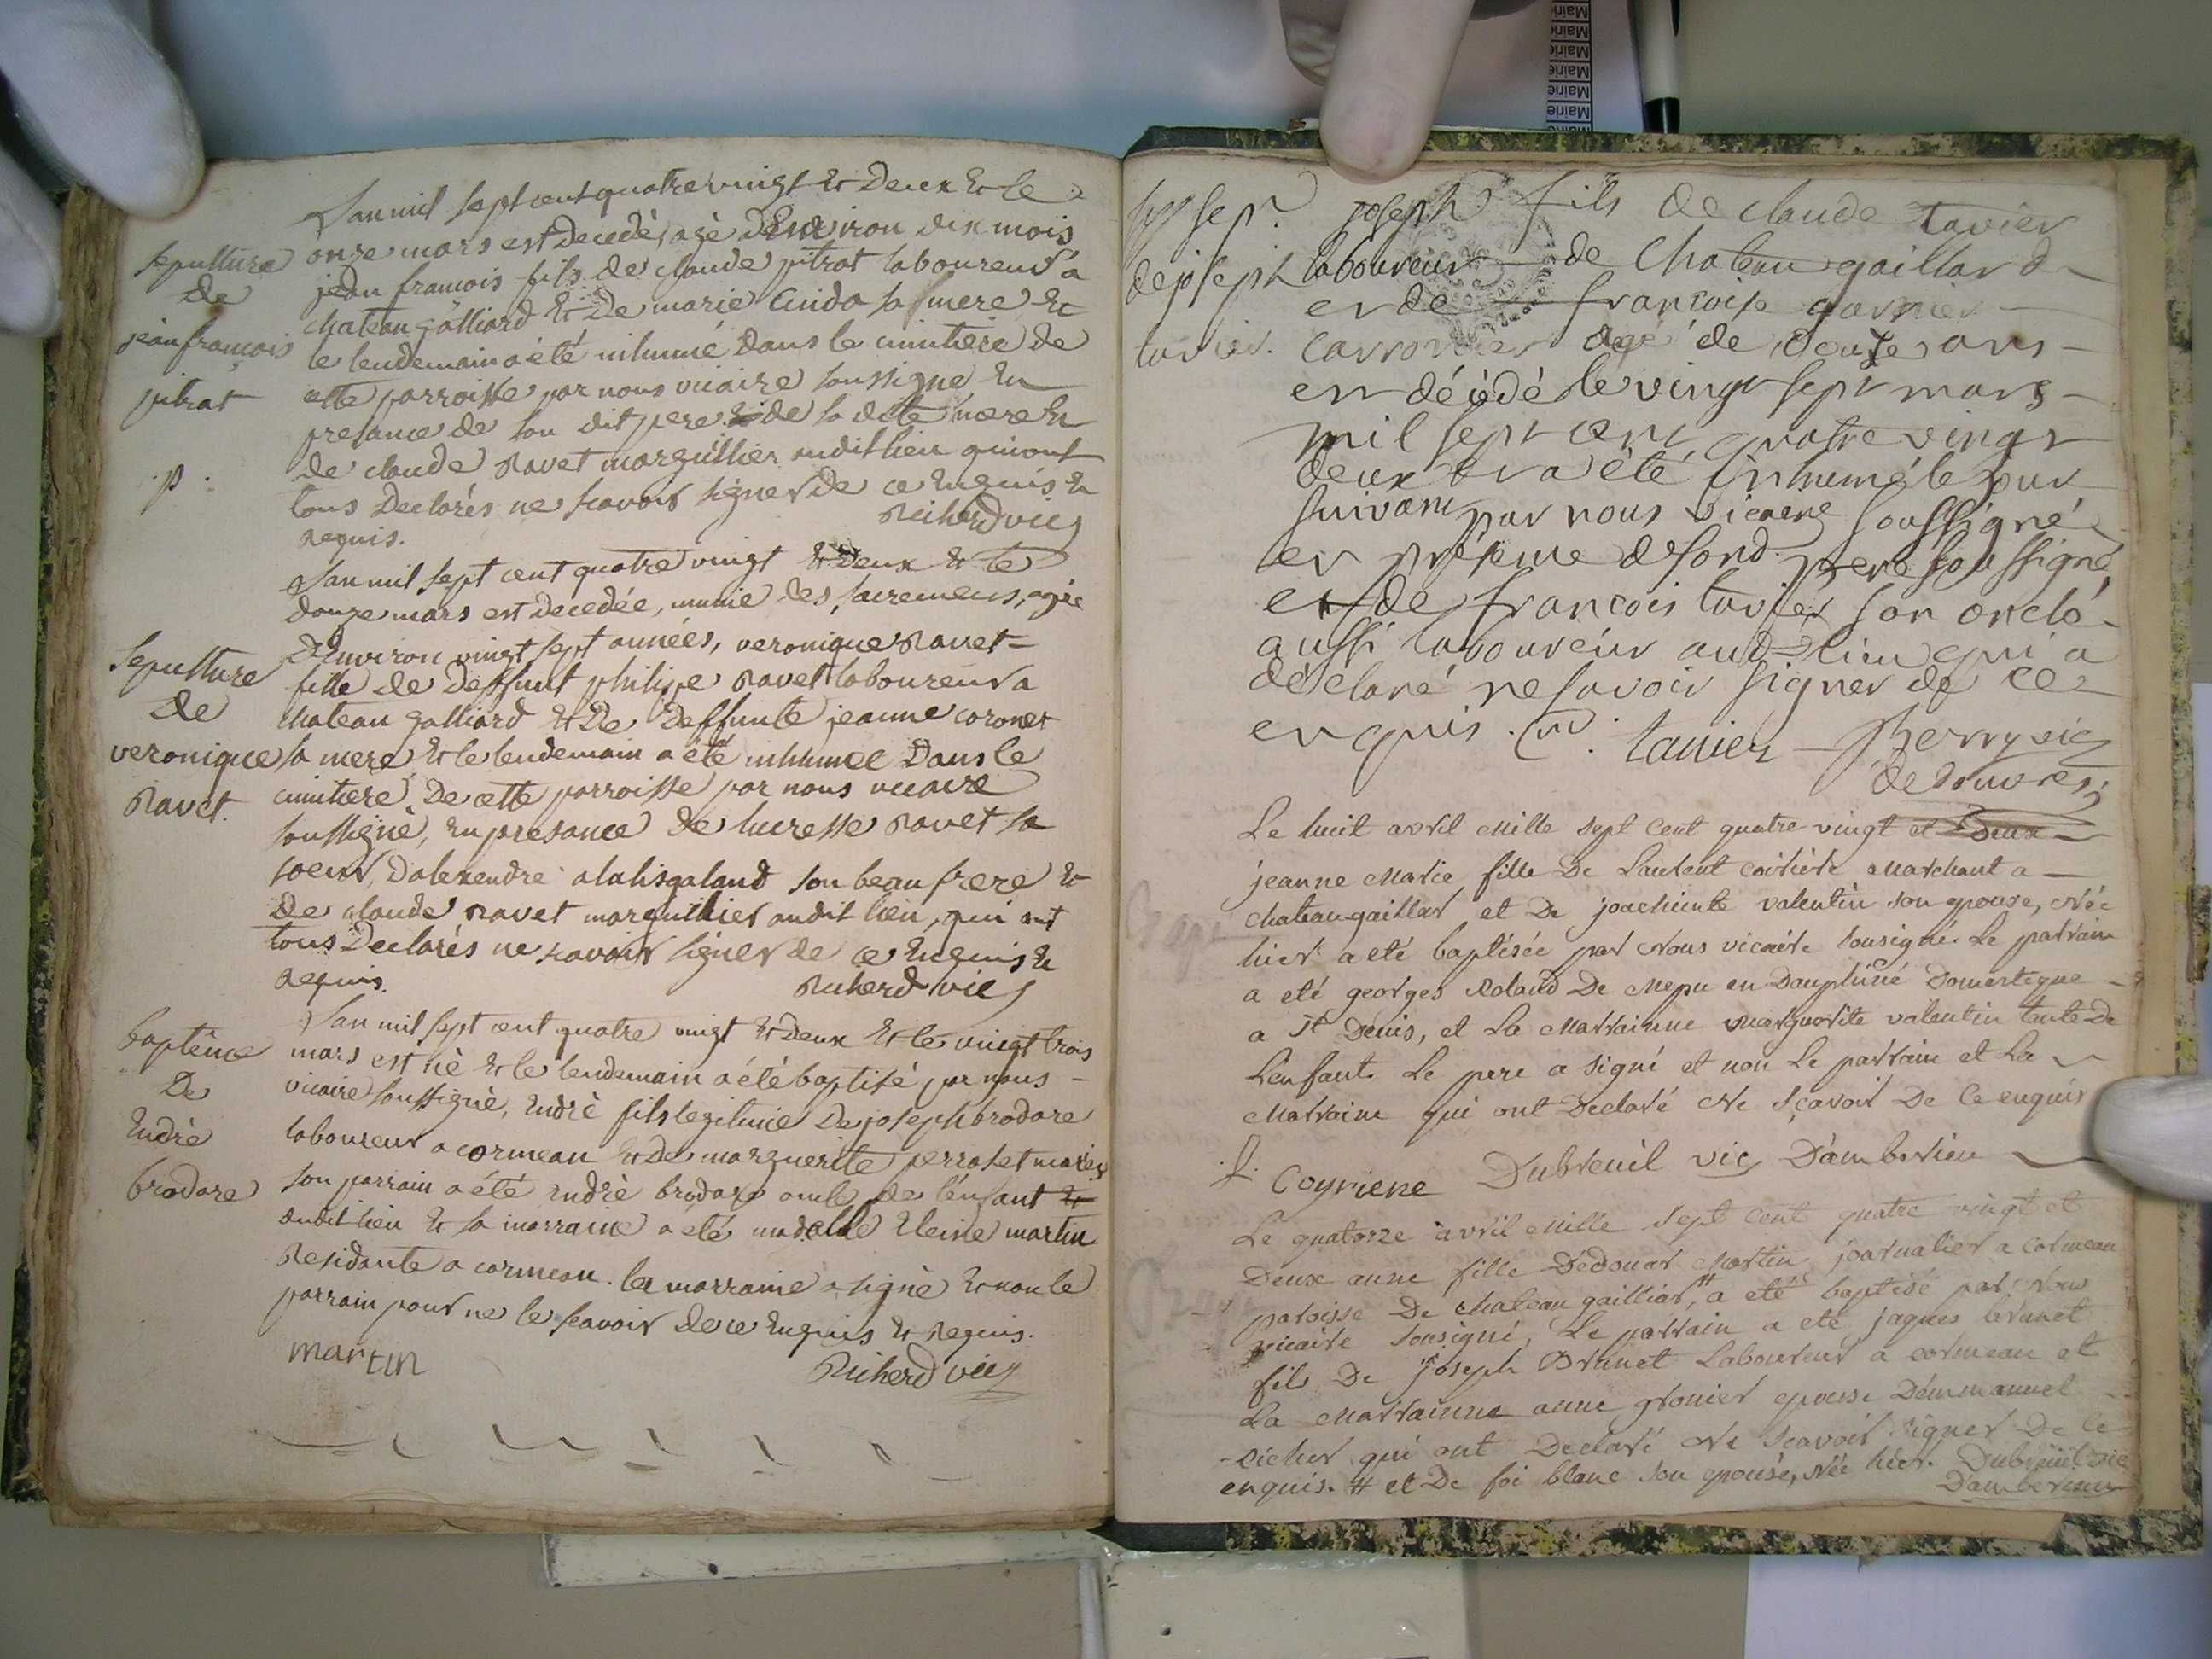 Sepulture
de
jean françois
pitrat
p.
Lan mil sept cent quatre vingt et Deux et le
onze mars est Decedé, agé Denviron dix mois
jean francois fils de claude pitrat laboureur a
chateau gâlliard et De marie Guido sa mere et
le lendemain a été inhumé Dans le cimitiere de
cette parroisse par nous vicaire soussigné En
presance de son dit pere et de la dite mere et
de claude Ravet marguillier audit lieu qui ont
tous Declarés ne scavoir signer de ce Enquis et
Requis.
Richerd vic
Sepulture
De
veronique
Ravet.
Lan mil sept cent quatre vingt et Deux et le
douze mars est decedée, munie des sacremens, agée
D'Environ vingt sept années, veronique Ravet
fille de Deffunt philipe Ravet laboureur a
chateau galliard et De Deffunte jeanne coronet
sa mere, et le lendemain a été inhumee Dans le
cimitiere, De cette parroisse par nous vicaire
soussigné, En presance De lucresse Ravet sa
soeur, D'alexendre son beau frere et
De claude Ravet marguillier audit lieu, qui ont
tous Declarés ne scavoir signer de ce Enquis et
Requis.
Richerd vic
baptême
De
Endrè
brodare
Lan mil sept cent quatre vingt et Deux et le vingt trois
mars est né et le lendemain a été baptisé par nous
vicaire soussigné, Endrè fils legitime De joseph brodare
laboureur a cormeau et De marguerite perroset mariés
son parrain a été Endrè brodare oncle de l'enfant et
audit lieu et sa marraine a été madelle Eleine martin
Residante a cormeau. la marraine a signé et non le
parrain pour ne le scavoir De ce Enquis et Requis.
martin
Richerd vic
sep.
de joseph
tavier.
joseph fils de claude tavier
laboureur de Chateau gaillard
et de françoise garnier
carronier agé de douze ans
est décédé le vingt sept mars
mil sept cent quatre vingt
deux et a été inhumé le jour
suivant par nous vicaire soussigné
en présence de sond. pere soussigné
et de francois tavier son oncle
aussi laboureur aud. lieu qui a
déclaré ne savoir signer de ce
enquis. C. tavier Therry vic
de douvres
Le huit avril Mille Sept Cent quatre vingt et Deux
jeanne Marie fille De Laurent coiriere Marchant a
chateaugaillar et De joachimte valentin son epouse, Née
hier a eté baptisée par Nous vicaire sousigné. Le parrain
a eté georges Roland De Mepu en Dauphiné Domestique
a St Denis, et La Marrainne marguorite valentin tante De
Lenfant. Le pere a signé et non Le parrain et La
Marraine qui ont Declaré Ne Sçavoir De Ce enquis
L. Coyriere Dubreuil vic D'ambérieu
Le quatorze avril Mille Sept Cent quatre vingt et
Deux anne fille Dedouar Martin journalier a Cormeau
paroisse De chateau gailliar,# a eté baptisé par Nous
vicaire sousigné, Le parrain a ete jaques brunet
fils De joseph Brunet Laboureur a cormeau et
La Marrainne anne gronier epouse Démmanuel
qui ont Declaré Ne Scavoir signer De Ce
enquis. # et De foi blanc son epouse, née hier. Dubreuil vic
D'amberieu